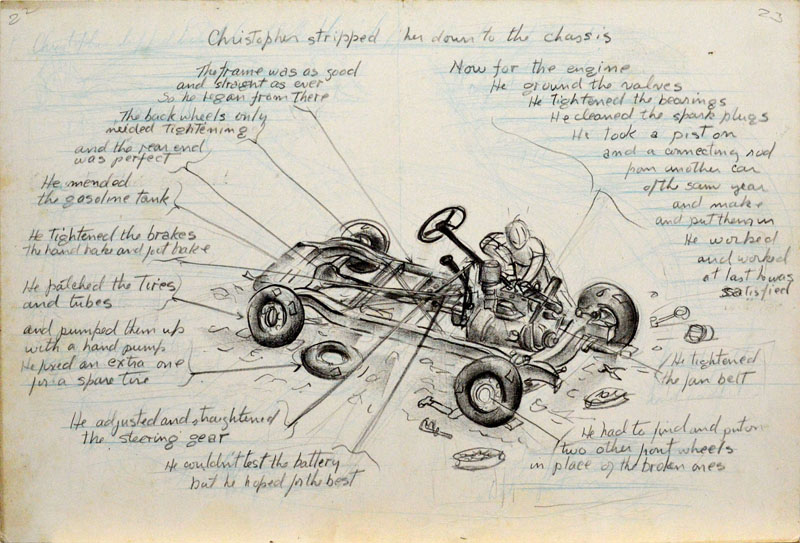 22
23
Christopher stripped her down to the chassis
The frame was as good
and straight as ever
So he began from There
The back wheels only
needed Tightening
and the rear end
was perfect
He mended
the gasoline tank
He Tightened the brakes
The hand brake and foot brake
He patched the Tires
and tubes
and pumped them up
with a hand pump
He fixed an extra one
for a spare tire
He adjusted and straightened
the steering gear
He couldn't test the battery
but he hoped for the best
Now for the engine
He ground the valves
He Tightened the bearings
He cleaned the spark plugs
He took a piston
and a connecting rod
from another car
of the same year
and make
and put them in
He worked
and worked
at last he was
satisfied
He tightened
the fan belt
He had to find and put on
two other front wheels
in place of the broken ones